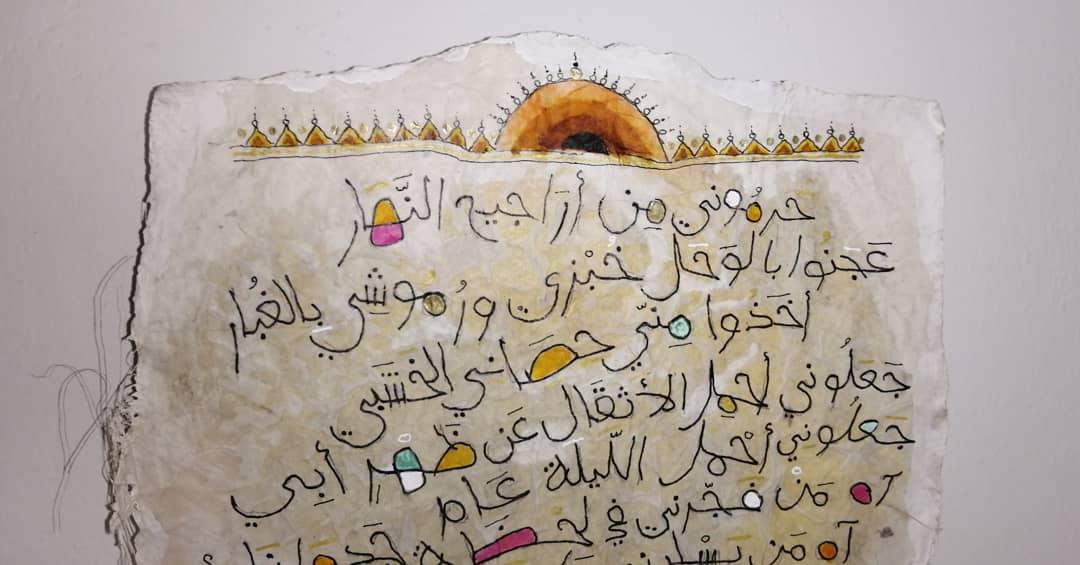 حرمُوني مِن أرَاجيح النَّهار
عَجنُوا بالوَحَل خُبْزي ورُموشِي بالغبُار
أخَذوا منِّي حصَاني الخشَبَي
جَعلُوني أحمِل الأثقَال عَن ظَهر أبِي
جَعلُوني أحْمل اللّيلة عَام
آه مَن فجّرني في لحظة جَدول
آه مَن يسْلبني